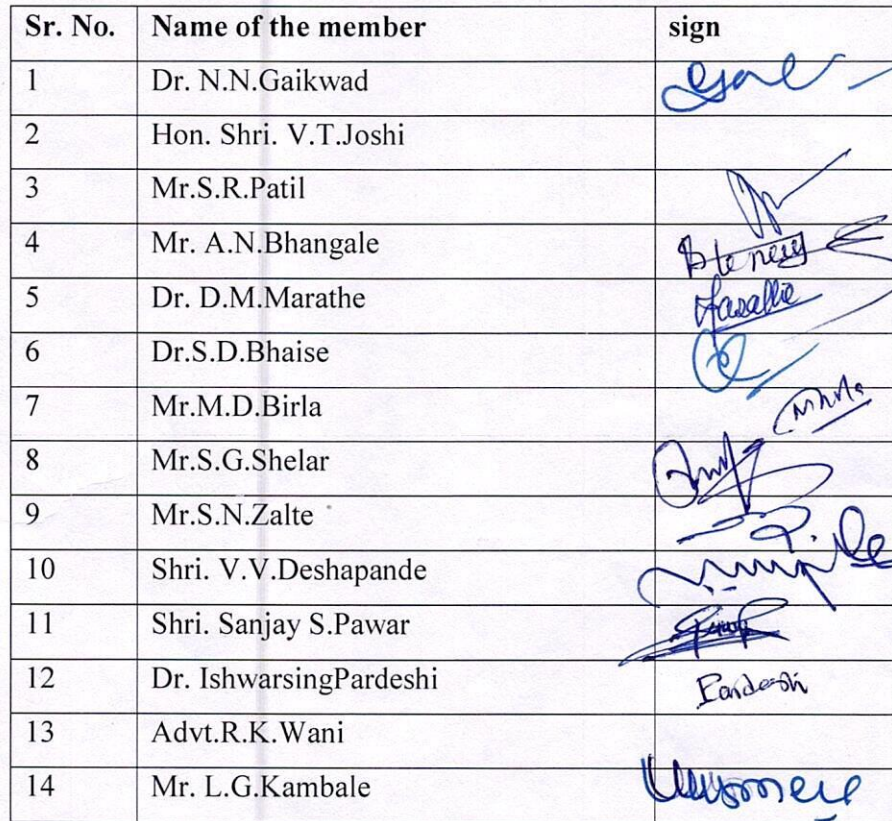 Sr. No. Name of the member sign
1 Dr. N.N.Gaikwad
2 Hon. Shri. V.T.Joshi
3 Mr.S.R.Patil
4 Mr. A.N.Bhangale
5 Dr. D.M.Marathe
6 Dr.S.D.Bhaise
7 Mr.M.D.Birla
8 Mr.S.G.Shelar
9 Mr.S.N.Zalte
10 Shri. V.V.Deshapande
11 Shri. Sanjay S.Pawar
12 Dr. IshwarsingPardeshi
13 Advt.R.K.Wani
14 Mr. L.G.Kambale